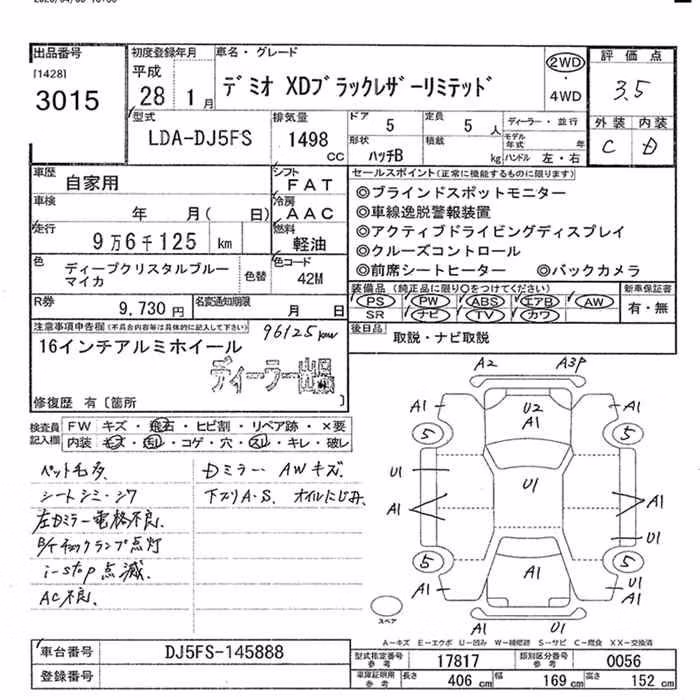 出品番号
[1428]
3015
初度登録年月
平成
28 1 月
車名・グレード
デミオ XDブラックレザーリミテッド
2WD
・
4WD
評価点
3.5
外装 内装
C D
型式
LDA-DJ5FS
排気量
1498
CC
ドア 5
定員 5 人
形状
ハッチB
積載
kg
ディーラー・並行
モデル年式 年
ハンドル 左・右
車歴
自家用
シフト
FAT
車検
年 月( 日)
冷房
AAC
走行
9万6千125 km
燃料
軽油
色
ディープクリスタルブルー
マイカ
色替
色コード
42M
R券
9,730 円
名変通知期限
月 日
セールスポイント(正常に機能するものに限ります)
◎ブラインドスポットモニター
◎車線逸脱警報装置
◎アクティブドライビングディスプレイ
◎クルーズコントロール
◎前席シートヒーター ◎バックカメラ
装備品(純正品に限り○をつけてください)
PS PW ABS エアB AW
SR ナビ TV カワ
新車保証書
有・無
後日品
取説・ナビ取説
注意事項申告欄(不具合内容等は具体的に記入して下さい)
96125km
16インチアルミホイール
ディーラー出品
修復歴 有〔箇所 〕
検査員
記入欄
FW キズ・飛石・ヒビ割・リペア跡・×要
内装 キズ・汚れ・コゲ・穴・スレ・キレ・破レ
ペット毛多、
シートシミ・シワ
左Dミラー電格不良、
B/Tチェックランプ点灯
i-stop点滅、
AC不良、
Dミラー・AWキズ、
下ズリA・S、オイルにじみ、
A2 A3P
A1 U2 A1
A1
5 5
U1 U1
A1 A1
U1
5 5
A1 A1 U1
A1
A1 U1
スペア
A-キズ E-エクボ U-凹み W-補修跡 S-サビ C-腐食 XX-交換済
車台番号
DJ5FS-145888
登録番号
型式指定番号
参考
17817
類別区分番号
参考
0056
車庫証明用
参考
長さ 406 cm
幅 169 cm
高さ 152 cm